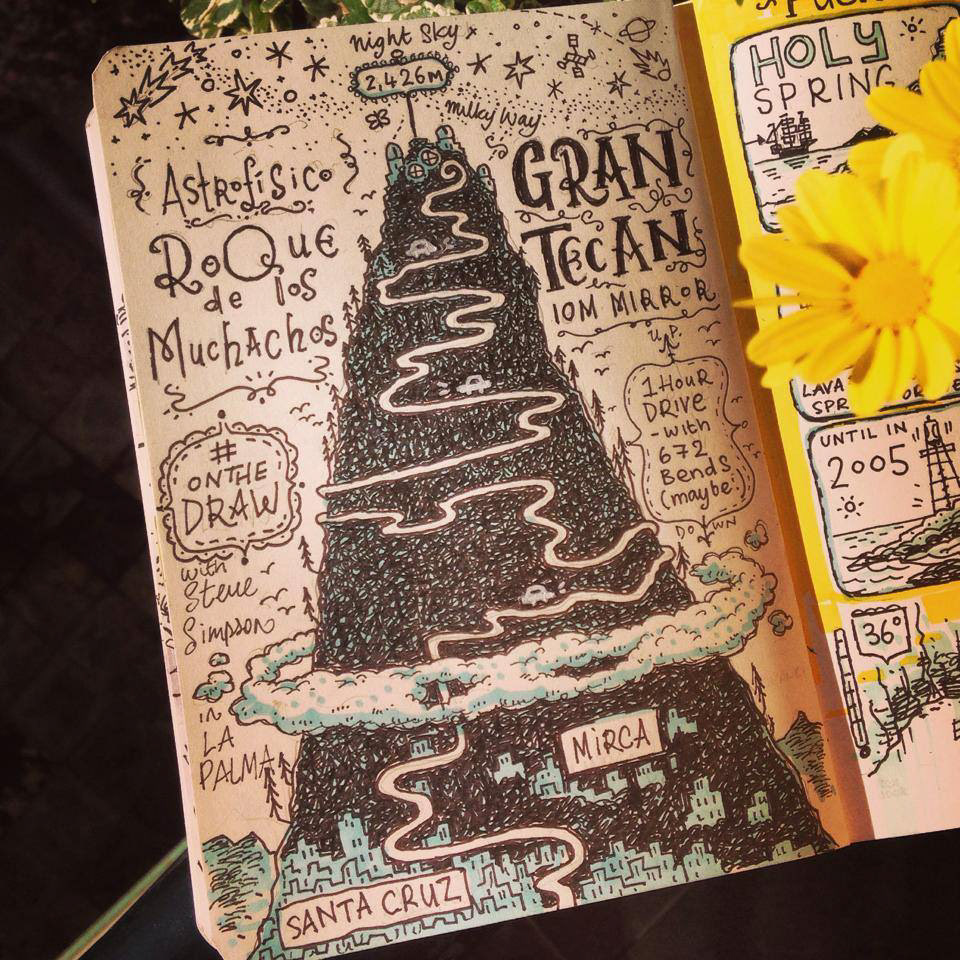 night Sky
2,426M
milky Way
Astrofísico
RoQue
de los
Muchachos
GRAN
TECAN
10M MIRROR
UP
1 HOUR
DRIVE
- with
672
Bends
(maybe)
DOWN
#
ONTHE
DRAW
with
Steve
Simpson
IN
LA
PALMA
MIRCA
SANTA CRUZ
HOLY
SPRING
LAVA
UNTIL IN
2005
36°